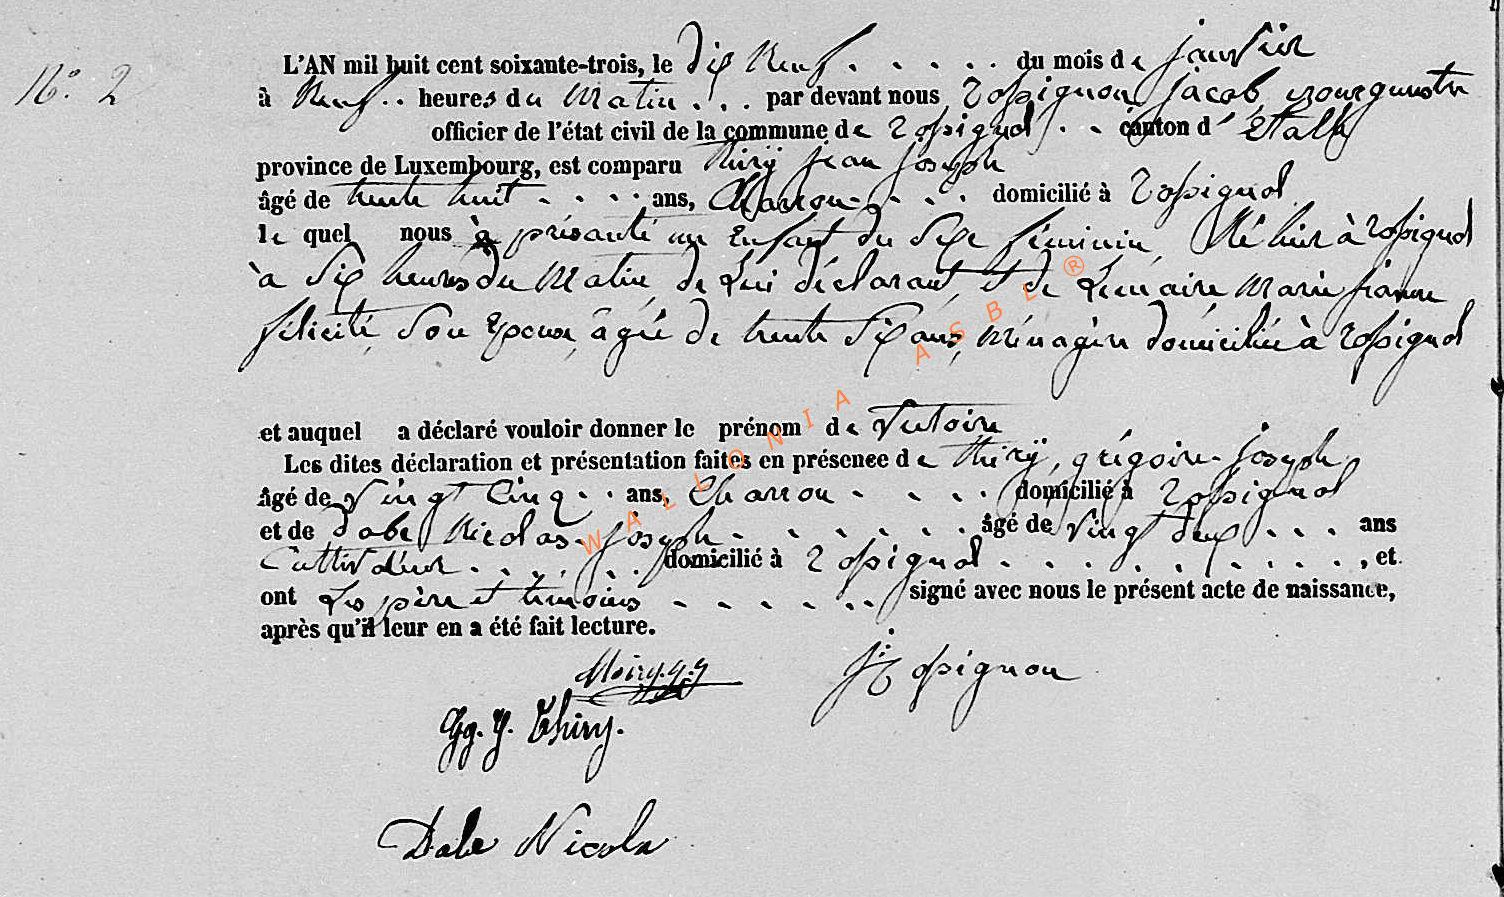 N° 2
L'AN mil huit cent soixante-trois, le dix neuf . . . . . du mois de janvier
à Neuf . . heures du Matin . . . par devant nous Rossignon Jacob, Bourgmestre
officier de l'état civil de la commune de Rossignol . . canton d' Etalle
province de Luxembourg, est comparu thiry jean joseph
âgé de trente huit . . . . ans, Charron . . . . domicilié à Rossignol
le quel nous à présenté un Enfant du Sexe féminin, Né hier à Rossignol
à Six heures du Matin de Lui déclarant, et de Lemaire Marie jeanne
félicité, Son Epouse, âgée de trente Six ans, Ménagère domiciliée à Rossignol
et auquel a déclaré vouloir donner le prénom de Victoire
Les dites déclaration et présentation faites en présence de thiry, grégoire joseph
âgé de Vingt Cinq . . ans, Charron . . . . domicilié à Rossignol
et de dabe Nicolas joseph . . . . . . . âgé de Vingt deux . . . ans
Cultivateur . . . . . . . domicilié à Rossignol . . . . . . . . . . , et
ont Les père et témoins . . . . . . signé avec nous le présent acte de naissance,
après qu'il leur en a été fait lecture.
J: Rossignon
Gg. J. Thiry.
Dabe Nicola
WALLONIA ASBL ®